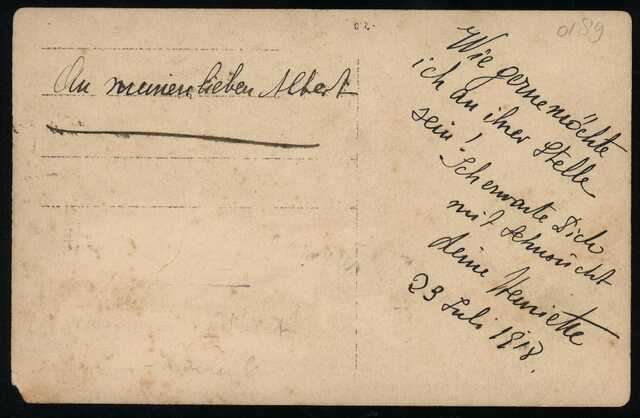 02.
0189
An meinen lieben Albert
Wie gerne möchte
ich an ihrer Stelle
sein!
Ich erwarte Dich
mit Sehnsucht
deine Henriette
23 Juli 1918.